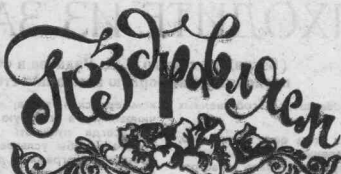 Поздравляем